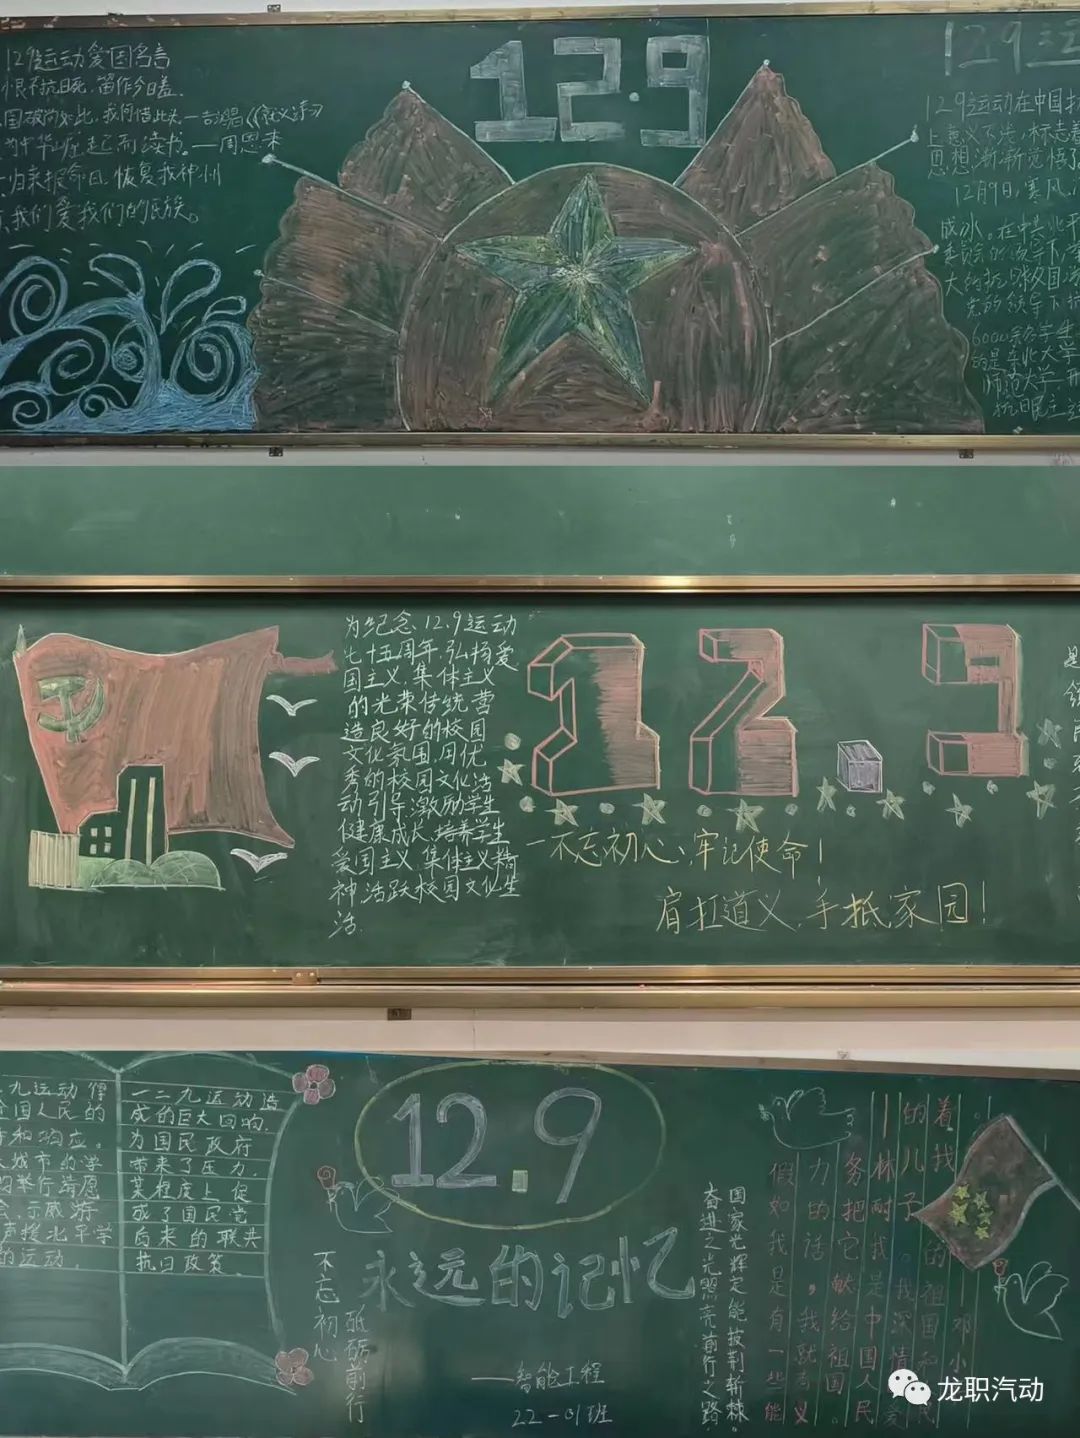 12.9运动爱国名言
恨不抗日死,留作今日羞.
国破尚如此,我何惜此头—吉鸿昌《就义诗》
中华崛起而读书。—周恩来
归来报命日,恢复我神州
我们爱我们的民族。
12.9
12.9运
12.9运动在中国
上意义不浅,标志着
思想渐渐觉悟了
12月9日,寒风
成冰。在中共北平
委员会的领导下,学
大的抗日救国
党的领导下
6000余名学生
的是东北大学
师范大学
抗日民主
为纪念12.9运动
七十五周年,弘扬爱
国主义,集体主义
的光荣传统营
造良好的校园
文化氛围,用优
秀的校园文化活
动引导,激励学生
健康成长,培养学生
爱国主义,集体主义精
神活跃校园文化生
活.
12.9
一不忘初心、牢记使命!
肩扛道义,手抵家园!
九运动得
全国人民的
和响应。
城市的学
举行请愿
会、示威游
声援北平学
的运动.
一二九运动造
成的巨大回响.
为国民政府
带来了压力.
某程度上促
成了国民党
后来的联共
抗日政策.
12.9
永远的记忆
不忘初心
砥砺前行
——智能工程
22-01班
国家光辉定能披荆斩棘.
奋进之光照亮前行之路.
假如我是有一些能
力的话,我就有义
务把它献给祖国。
—林耐
我是中国人民
的儿子。我深情爱
着我的祖国和
—邓小
龙职汽动